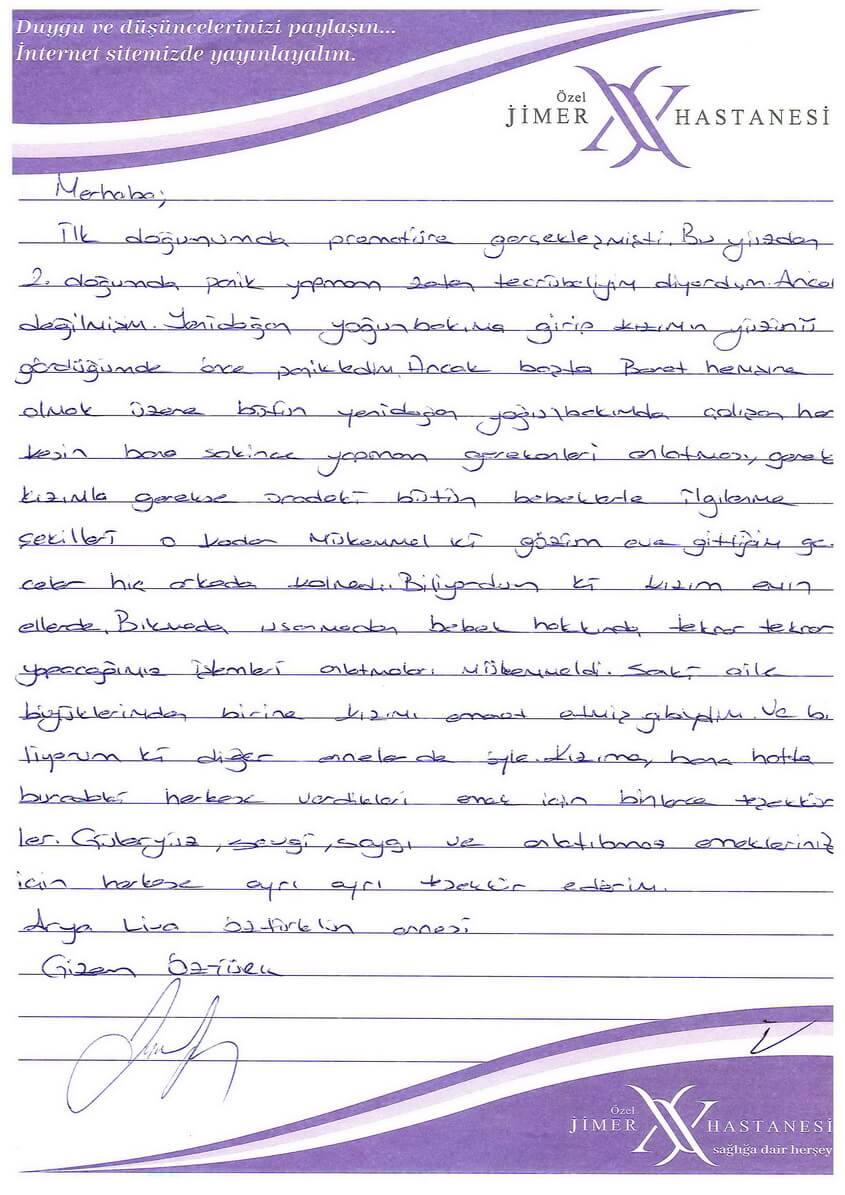 Duygu ve düşüncelerinizi paylaşın...
İnternet sitemizde yayınlayalım.
Özel
JİMER HASTANESİ
Merhaba;
İlk doğumumda prematüre gerçekleşmişti. Bu yüzden
2. doğumda panik yapmam zaten tecrübeliyim diyordum. Ancak
değilmişim. Yenidoğan yoğunbakıma girip kızımın yüzünü
gördüğümde önce panikledim. Ancak başta hemşire
olmak üzere bütün yenidoğan yoğunbakımda çalışan her
kesin bana sakince yapmam gerekenleri anlatması, gerek
kızımla gerekse oradaki bütün bebeklerle ilgilenme
şekilleri o kadar mükemmel ki gözüm eve gittiğim ge-
celer hiç arkada kalmadı. Biliyordum ki kızım emin
ellerde. Bıkmada usanmadan bebek hakkında tekrar tekrar
yapacağımız işlemleri anlatmaları mükemmeldi. Sanki aile
büyüklerimden birine kızımı emanet etmiş gibiydim. Ve bi
liyorum ki diğer annelerde öyle. Kızıma, bana hatta
buradaki herkese verdikleri emek için binlerce teşekkür
ler. Güleryüz, sevgi, saygı ve anlatılmaz emekleriniz
için herkese ayrı ayrı teşekkür ederim.
Arya Liva Öztürk'ün annesi
Gizem Öztürk
Özel
JİMER HASTANESİ
sağlığa dair herşey